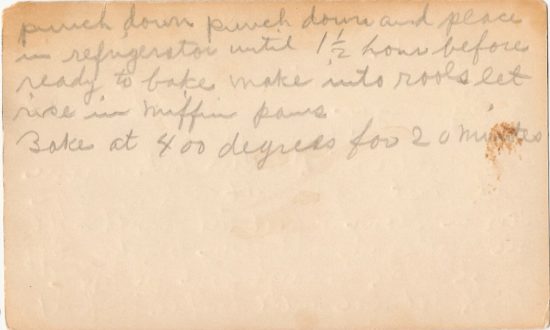 punch down punch down and place
in refrigerator until 1 1/2 hour before
ready to bake make into rools let
rise in miffin pans.
Bake at 400 degrees for 20 minutes